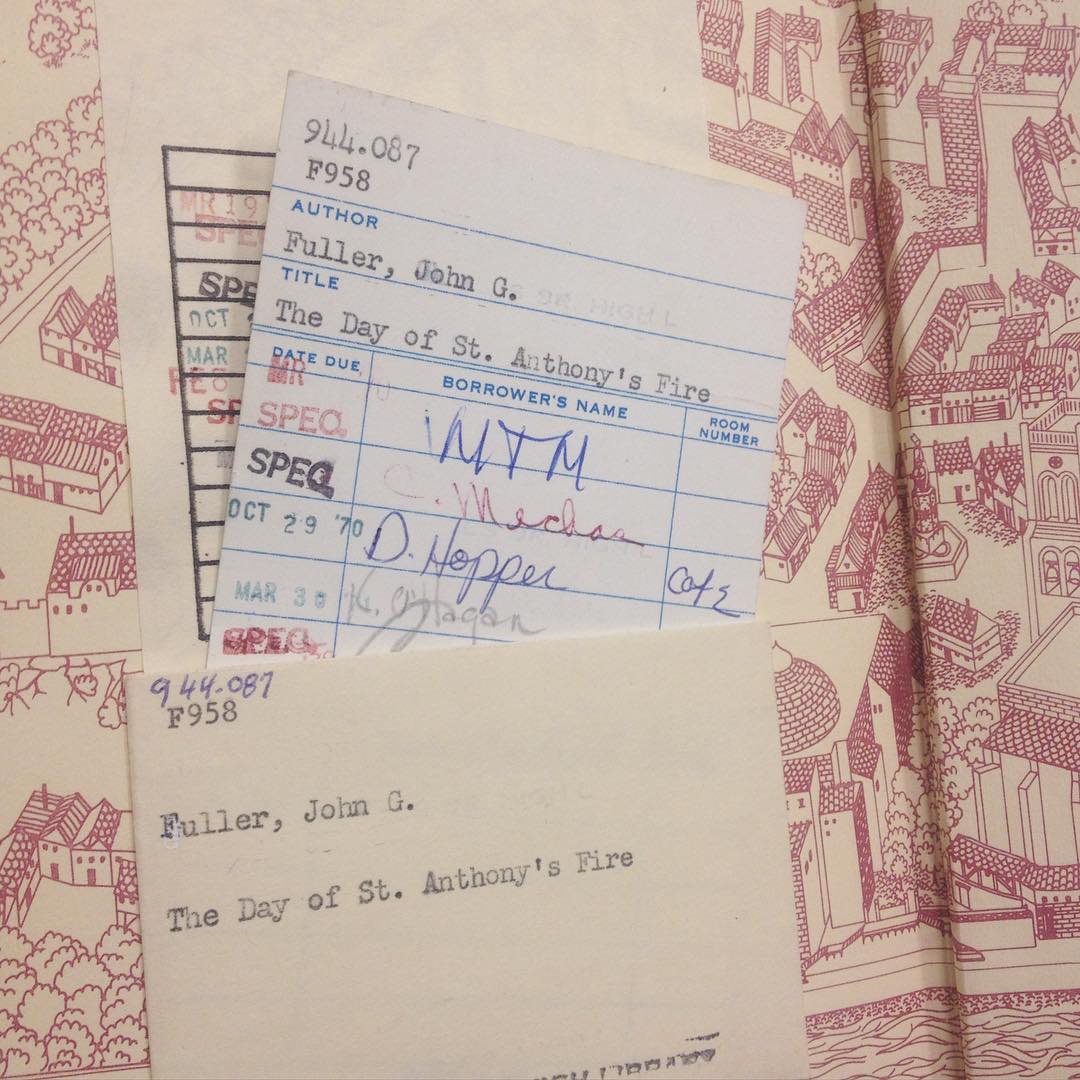 944.087
F958
AUTHOR
Fuller, John G.
TITLE
The Day of St. Anthony's Fire
DATE DUE BORROWER'S NAME ROOM NUMBER
MR
SPEQ MTM
SPEQ C.
OCT 29 '70 D. Hopper
MAR 30 K. O'Hagan
SPEQ
MR 19
SPE
SPE
OCT
MAR
SP
944.087
F958
Fuller, John G.
The Day of St. Anthony's Fire